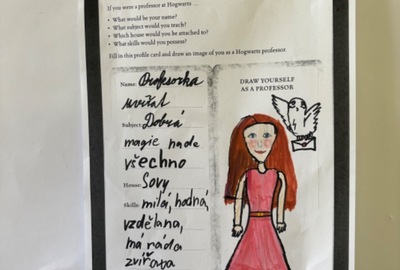 If you were a professor at Hogwarts ...
• What would be your name?
• What subject would you teach?
• Which house would you be attached to?
• What skills would you possess?
Fill in this profile card and draw an image of you as a Hogwarts professor.
Name: Profesorka
zvířat
Subject: Dobrá
magie nade
všechno
House: Sovy
Skills: milá, hodná,
vzdělaná,
má ráda
zvířata
DRAW YOURSELF
AS A PROFESSOR